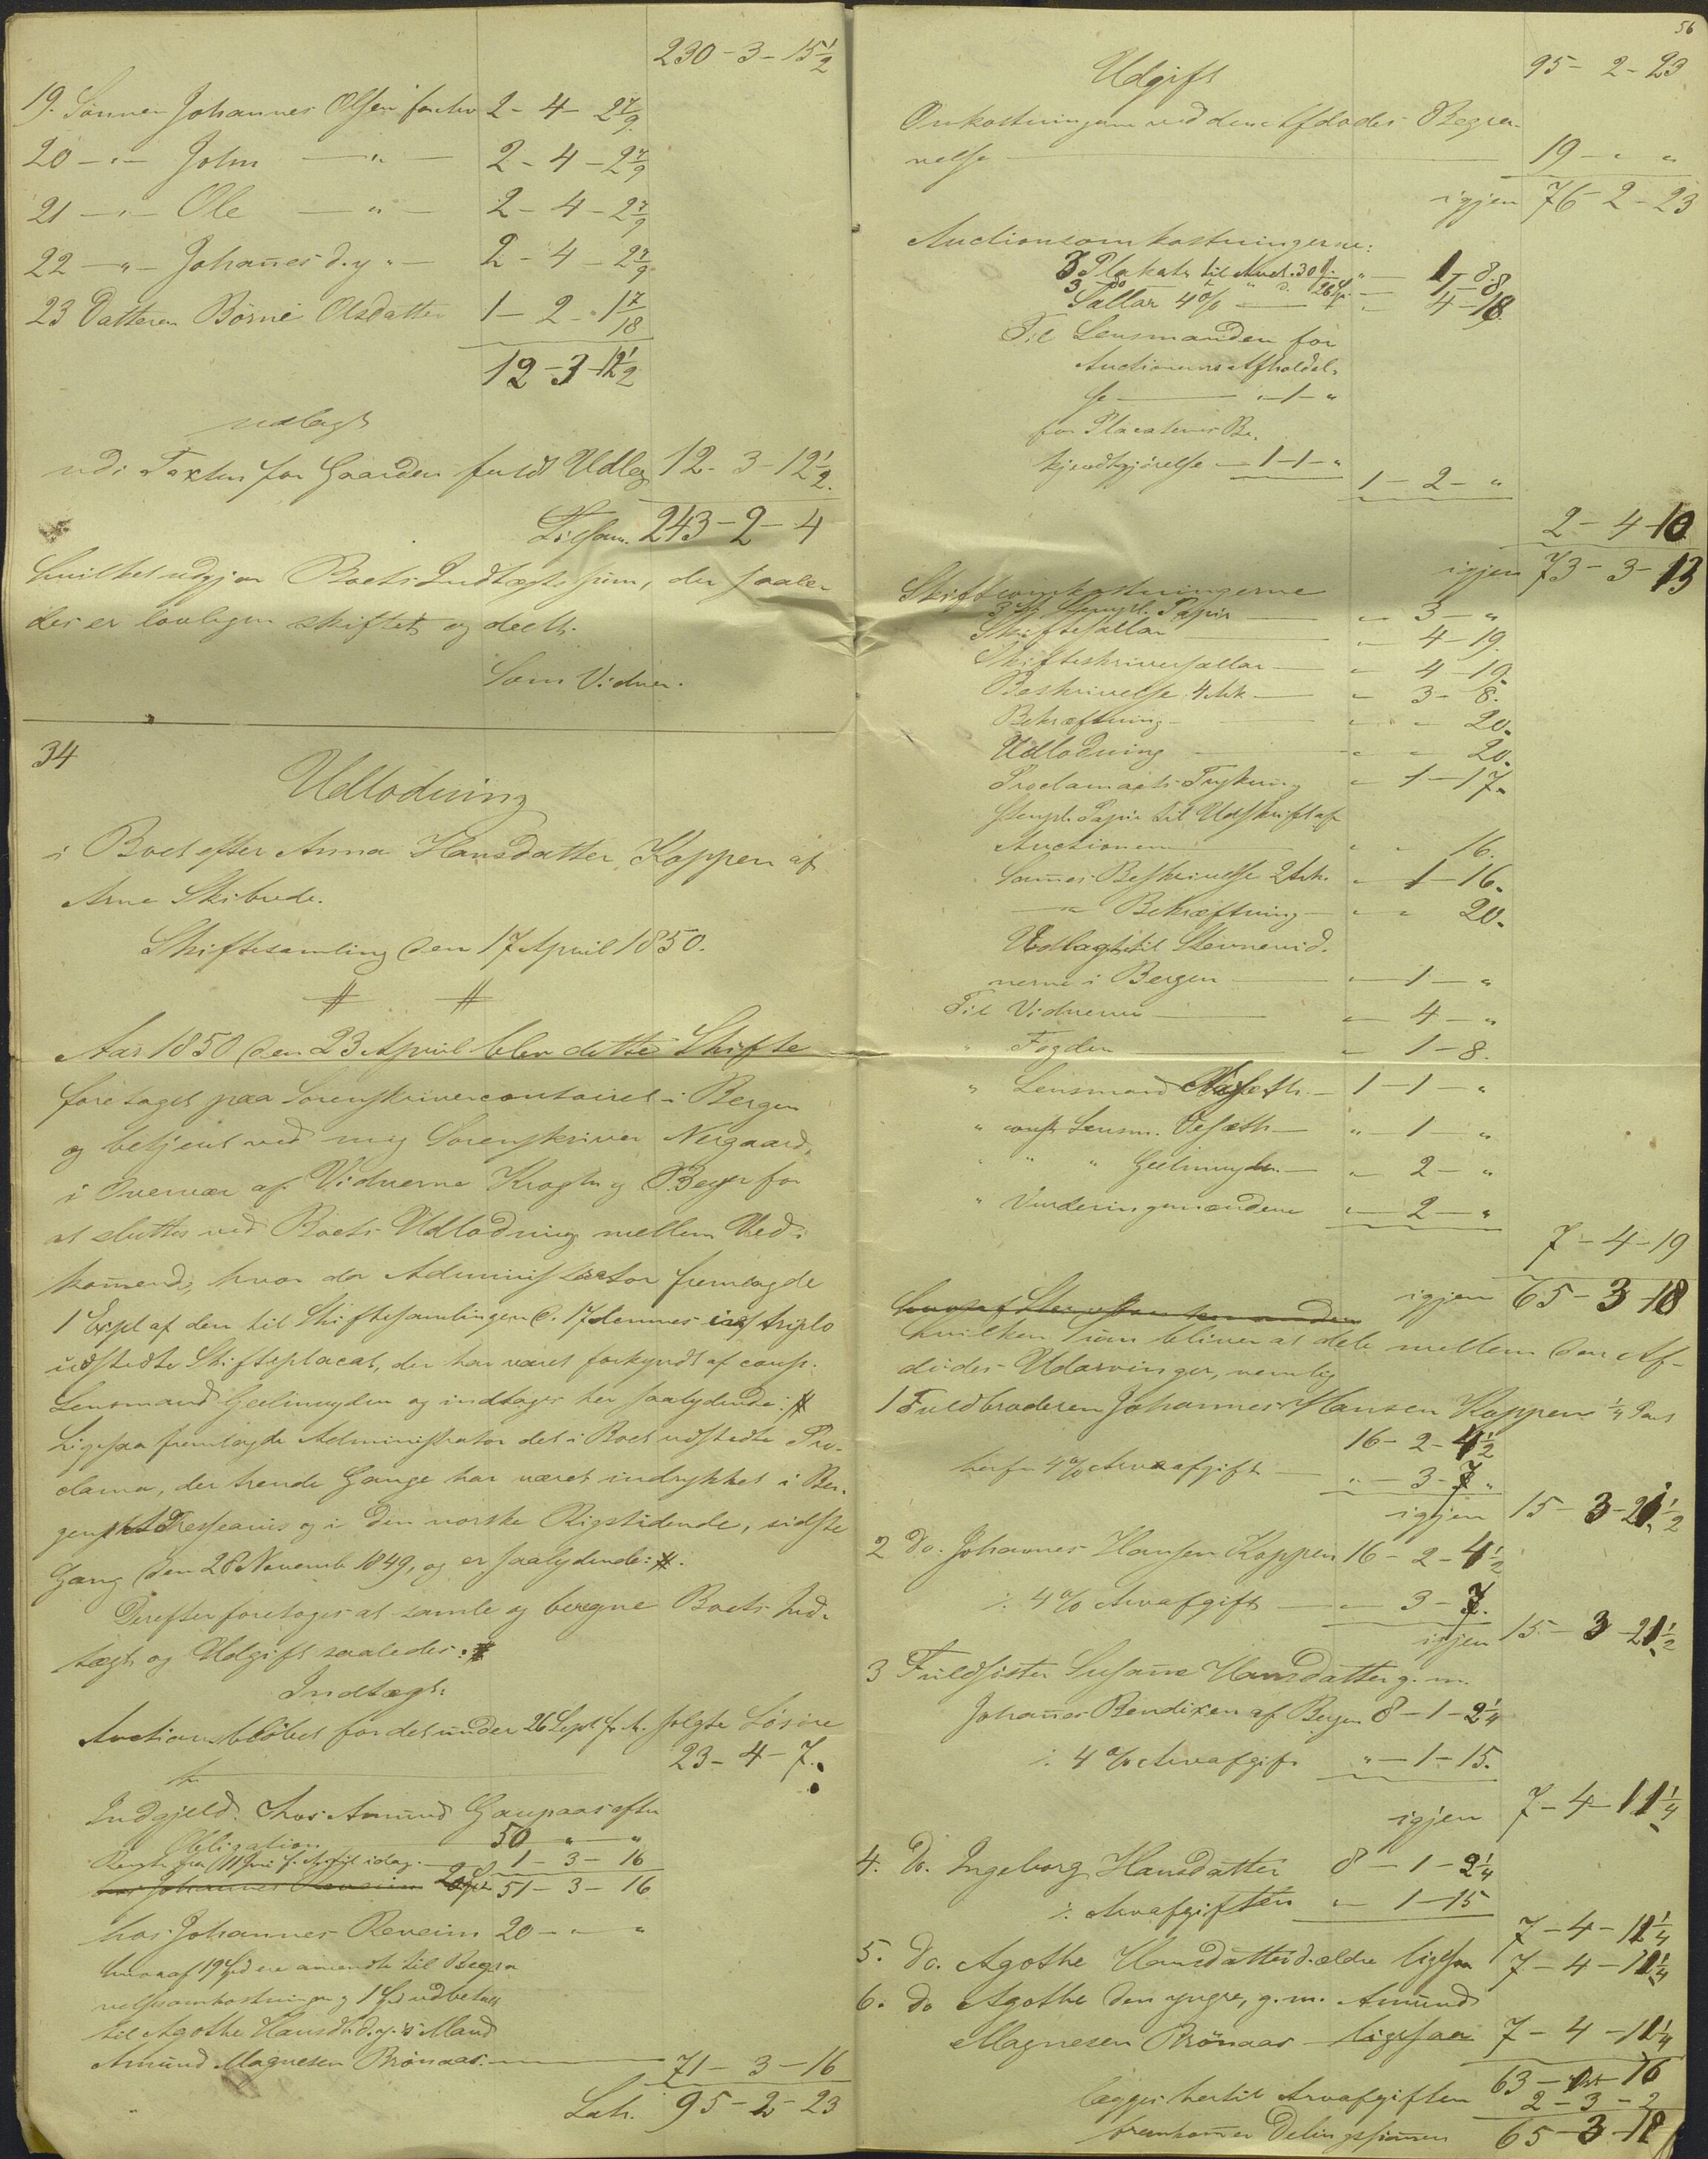 230-3-15½
19. Sönnen Johannes Olsen 2-4-2 7/9
20 -"- John -"- 2-4-2 7/9
21 -"- Ole -"- 2-4-2 7/9
22 -"- Johan̄es d. y. "- 2-4-2 7/9
23 Datteren Börne Olsdatter 1-2-1 7/18
12-3-12½
udlagt
udi Taxten for Gaarden fuldt Udlæg 12-3-12½
Tilsam. 243-2-4
hvilket udgjør Boets Indtægts sum, der saale-
des er lovligen skiftet og deelt.
Som Vidner.
34
Udlodning
i Boet efter Anna Hansdatter Koppen af
Arne Skibrede.
Skiftesamling den 17 April 1850.
# #
Aar 1850 den 23 April blev dette Skifte
foretaget paa Sorenskrivercontoiret i Bergen
og betjent ved mig Sorenskriver Nergaard,
i Overvær af Vidnerne Krogh og Beyer for
at sluttes ved Boets Udlodning mellem Ved-
kom̄ende, hvor da Administrator fremlagde
1 Expl af den til Skiftesamlingen d. 17 dennes in triplo
udstedte Skifteplacat, der har været forkyndt af const.
Lensmand Geelmuyden og indtages her saalydende: #
Ligesaa fremlagde Administrator det i Boet udstedte Pro-
clama, der trende Gange har været indrykket i Ber-
gens Adresseavis og i den norske Rigstidende, sidste
Gang den 28 Novemb. 1849, og er saalydende: #.
Derefter foretoges at samle og beregne Boets Ind-
tægt og Udgift saaledes: #
Indtægt:
Auctionsbeløbet for det under 26 Sept. f. A. solgte Løsøre
23-4-7.
Indgjeld. hos Amund Gaupaas efter
Obligation 50 " "
Rente fra 11 Juni f. A. til idag. 1-3-16
51-3-16
hos Johannes Reveim 20 - " - "
hvoraf 19 Spd ere anvendte til Begra-
velsesomkostninger og 1 Spd udbetalt
til Agothe Hansdtr. d. y.'s Mand
Amund Magnesen Brönaas. 71-3-16
Lat. 95-2-23
56
Udgift 95-2-23
Omkostningerne ved den Afdødes Begra-
velse 19 - " "
igjen 76-2-23
Auctionsomkostningerne:
3 Plakater til Auct. 30 1-8.
3 do 1-8
Sallar 4% " 4-18
Til Lensmanden for
Auctionens Afholdel-
se "-1-"
for Placatens Be-
kjendtgjørelse 1-1-"
1-2-"
2-4-10
igjen 73-3-13
Skifteomkostningerne
Stempl. Papir " 3-"
Skiftesallar " 4-19.
Skifteskriversallar " 4-19.
Beskrivelse 4 Ark " 3-8.
Bekræftning " " 20.
Udlodning " " 20.
Proclamaets Trykning " 1-17.
Stempl. Papir til Udskrift af
Auctionen " " 16.
Sam̄es Beskrivelse 2 Ark. " 1-16.
" Bekræftning " " 20.
Udlagt til Stevnevid-
nerne i Bergen " 1-"
Til Vidnerne " 4-"
" Fogden " 1-8.
" Lensmand 1-1-"
" const. Lensm. Vefseth " 1 "
" " " Geelmuyden " 2-"
" Vurderingsmændene " 2-"
7-4-19
igjen 65-3-18
hvilken Sum bliver at dele mellem den Af-
dødes Udarvinger, nemlig
1 Fuldbroderen Johannes Hansen Koppen ¼ Part
16-2-4½
herfra 4% Arveafgift " 3-7 "
igjen 15-3-21½
2 do. Johannes Hansen Koppen 16-2-4½
÷ 4% Arvafgift " 3-7.
igjen 15-3-21½
3 Fuldsøster Susan̄e Hansdatter g. m.
Johan̄es Bendixen af Bergen 8-1-2¼
÷ 4% Arvafgift " 1-15.
igjen 7-4-11¼
4. do. Ingeborg Hansdatter 8-1-2¼
÷ Arvafgiften " 1-15
7-4-11¼
5. do. Agothe Hansdatter d. ældre ligesaa 7-4-11¼
6. do Agothe den yngre, g. m. Amund
Magnesen Brönaas ligesaa 7-4-11¼
63-"-16
lægges hertil Arvafgiften 2-3-2
fremkom̄er Delingssum̄en 65-3-18